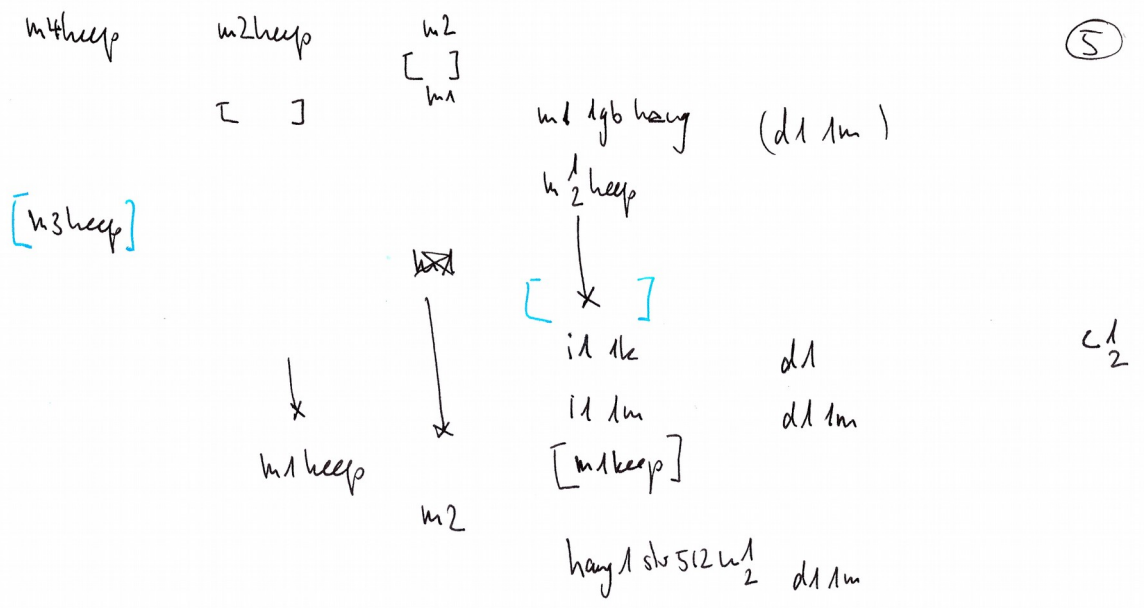 m4keep m2keep m2 5
[ ]
m1
[ ] m1 1gb hang (d1 1m)
m 1 2 keep
[m3keep]
[ ]
i1 1k d1 c 1 2
i1 1m d1 1m
m1keep [m1keep]
m2
hang1 str512 m 1 2 d1 1m